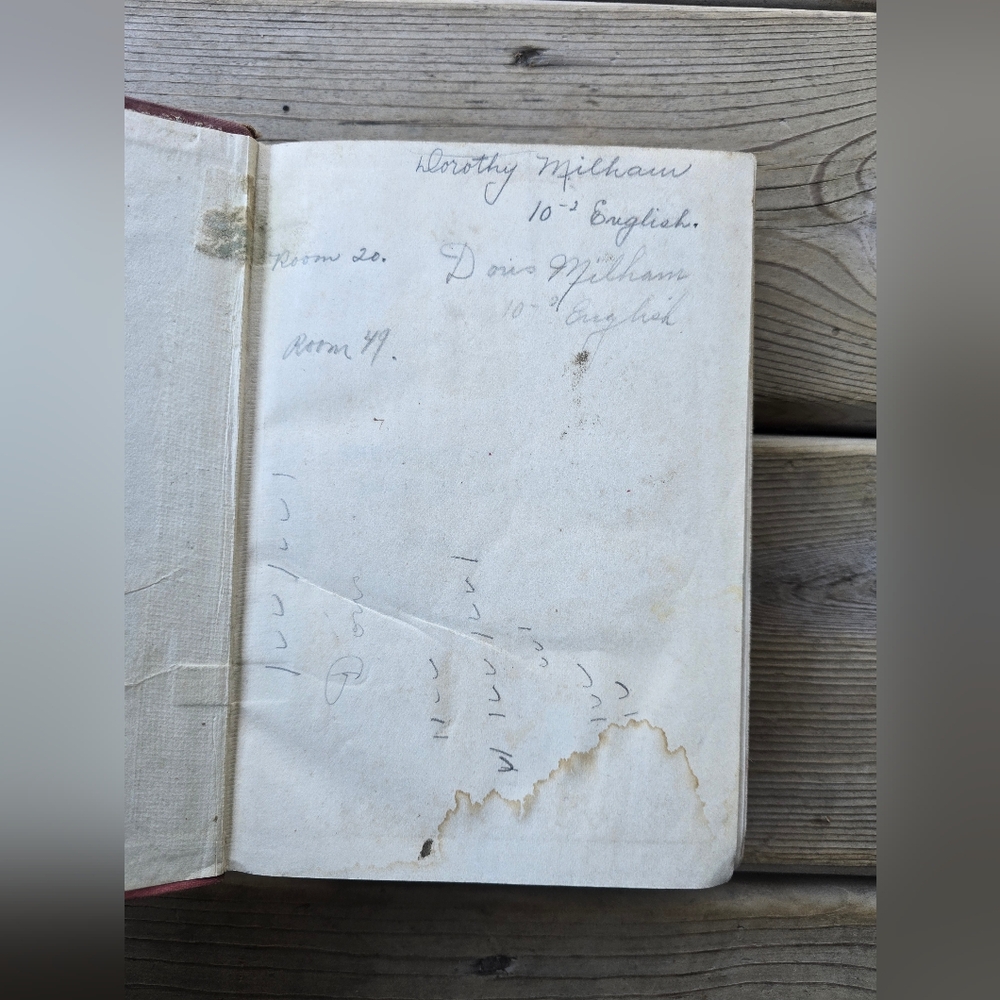 Dorothy Milham
10-2 English.
Room 20.
Doris Milham
10-2 English
Room 49.
Doris